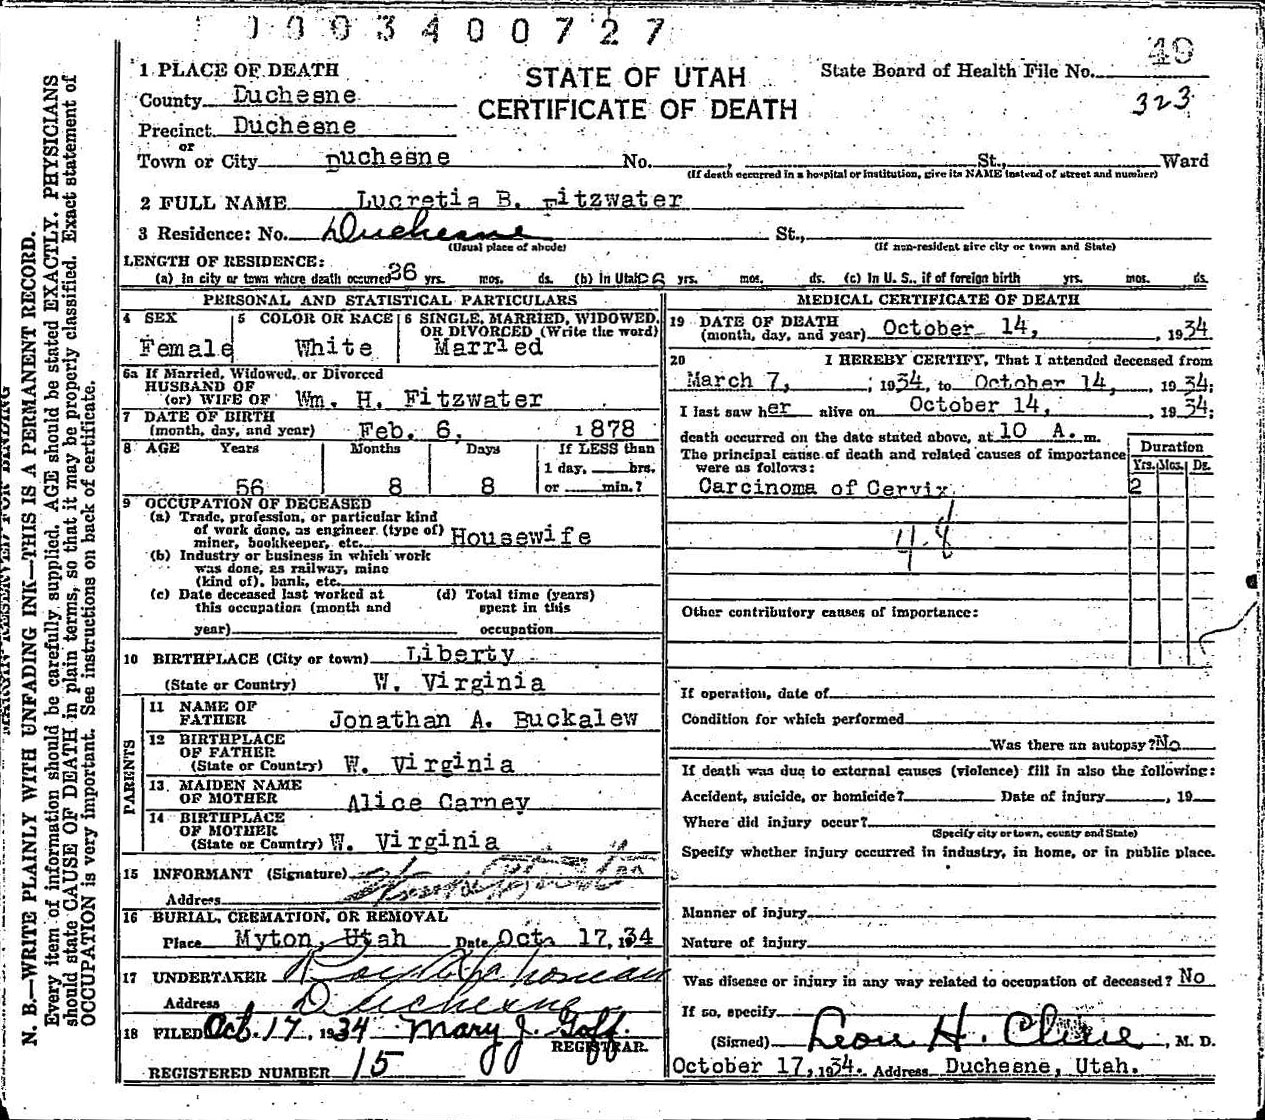 0003400727
49
323
STATE OF UTAH
CERTIFICATE OF DEATH
State Board of Health File No.
1 PLACE OF DEATH
County Duchesne
Precinct Duchesne
or
Town or City Duchesne No. , St., Ward
(If death occurred in a hospital or institution, give its NAME instead of street and number)
2 FULL NAME Lucretia B. Fitzwater
3 Residence: No. Duchesne St.,
(Usual place of abode) (If non-resident give city or town and State)
LENGTH OF RESIDENCE:
(a) In city or town where death occurred 26 yrs. mos. ds. (b) In Utah 26 yrs. mos. ds. (c) In U. S., if of foreign birth yrs. mos. ds.
PERSONAL AND STATISTICAL PARTICULARS
4 SEX
Female
5 COLOR OR RACE
White
6 SINGLE, MARRIED, WIDOWED, OR DIVORCED (Write the word)
Married
6a If Married, Widowed, or Divorced
HUSBAND OF
(or) WIFE OF Wm. H. Fitzwater
7 DATE OF BIRTH
(month, day, and year) Feb. 6, 1878
8 AGE Years Months Days If LESS than
1 day, hrs.
56 8 8 or min.?
9 OCCUPATION OF DECEASED
(a) Trade, profession, or particular kind
of work done, as engineer (type of)
miner, bookkeeper, etc. Housewife
(b) Industry or business in which work
was done, as railway, mine
(kind of), bank, etc.
(c) Date deceased last worked at (d) Total time (years)
this occupation (month and spent in this
year) occupation
10 BIRTHPLACE (City or town) Liberty
(State or Country) W. Virginia
PARENTS
11 NAME OF
FATHER Jonathan A. Buckalew
12 BIRTHPLACE
OF FATHER
(State or Country) W. Virginia
13 MAIDEN NAME
OF MOTHER Alice Carney
14 BIRTHPLACE
OF MOTHER
(State or Country) W. Virginia
15 INFORMANT (Signature)
Address
16 BURIAL, CREMATION, OR REMOVAL
Place Myton, Utah Date Oct. 17, 1934
17 UNDERTAKER
Address Duchesne
18 FILED Oct. 17, 1934 Mary J. Goff.
REGISTRAR.
REGISTERED NUMBER 15
MEDICAL CERTIFICATE OF DEATH
19 DATE OF DEATH
(month, day, and year) October 14, , 1934
20 I HEREBY CERTIFY, That I attended deceased from
March 7, ; 1934, to October 14, , 1934;
I last saw her alive on October 14, , 1934;
death occurred on the date stated above, at 10 A. m.
The principal cause of death and related causes of importance
were as follows:
Duration
Yrs. Mos. Ds.
Carcinoma of Cervix. 2
48
Other contributory causes of importance:
If operation, date of
Condition for which performed
Was there an autopsy? No
If death was due to external causes (violence) fill in also the following:
Accident, suicide, or homicide? Date of injury , 19
Where did injury occur?
(Specify city or town, county and State)
Specify whether injury occurred in industry, in home, or in public place.
Manner of injury
Nature of injury
Was disease or injury in any way related to occupation of deceased? No
If so, specify
(Signed) Leon H. Cline , M. D.
October 17, 1934. Address Duchesne, Utah.
MARGIN RESERVED FOR BINDING
N. B.—WRITE PLAINLY WITH UNFADING INK—THIS IS A PERMANENT RECORD.
Every item of information should be carefully supplied. AGE should be stated EXACTLY. PHYSICIANS
should state CAUSE OF DEATH in plain terms, so that it may be properly classified. Exact statement of
OCCUPATION is very important. See instructions on back of certificate.